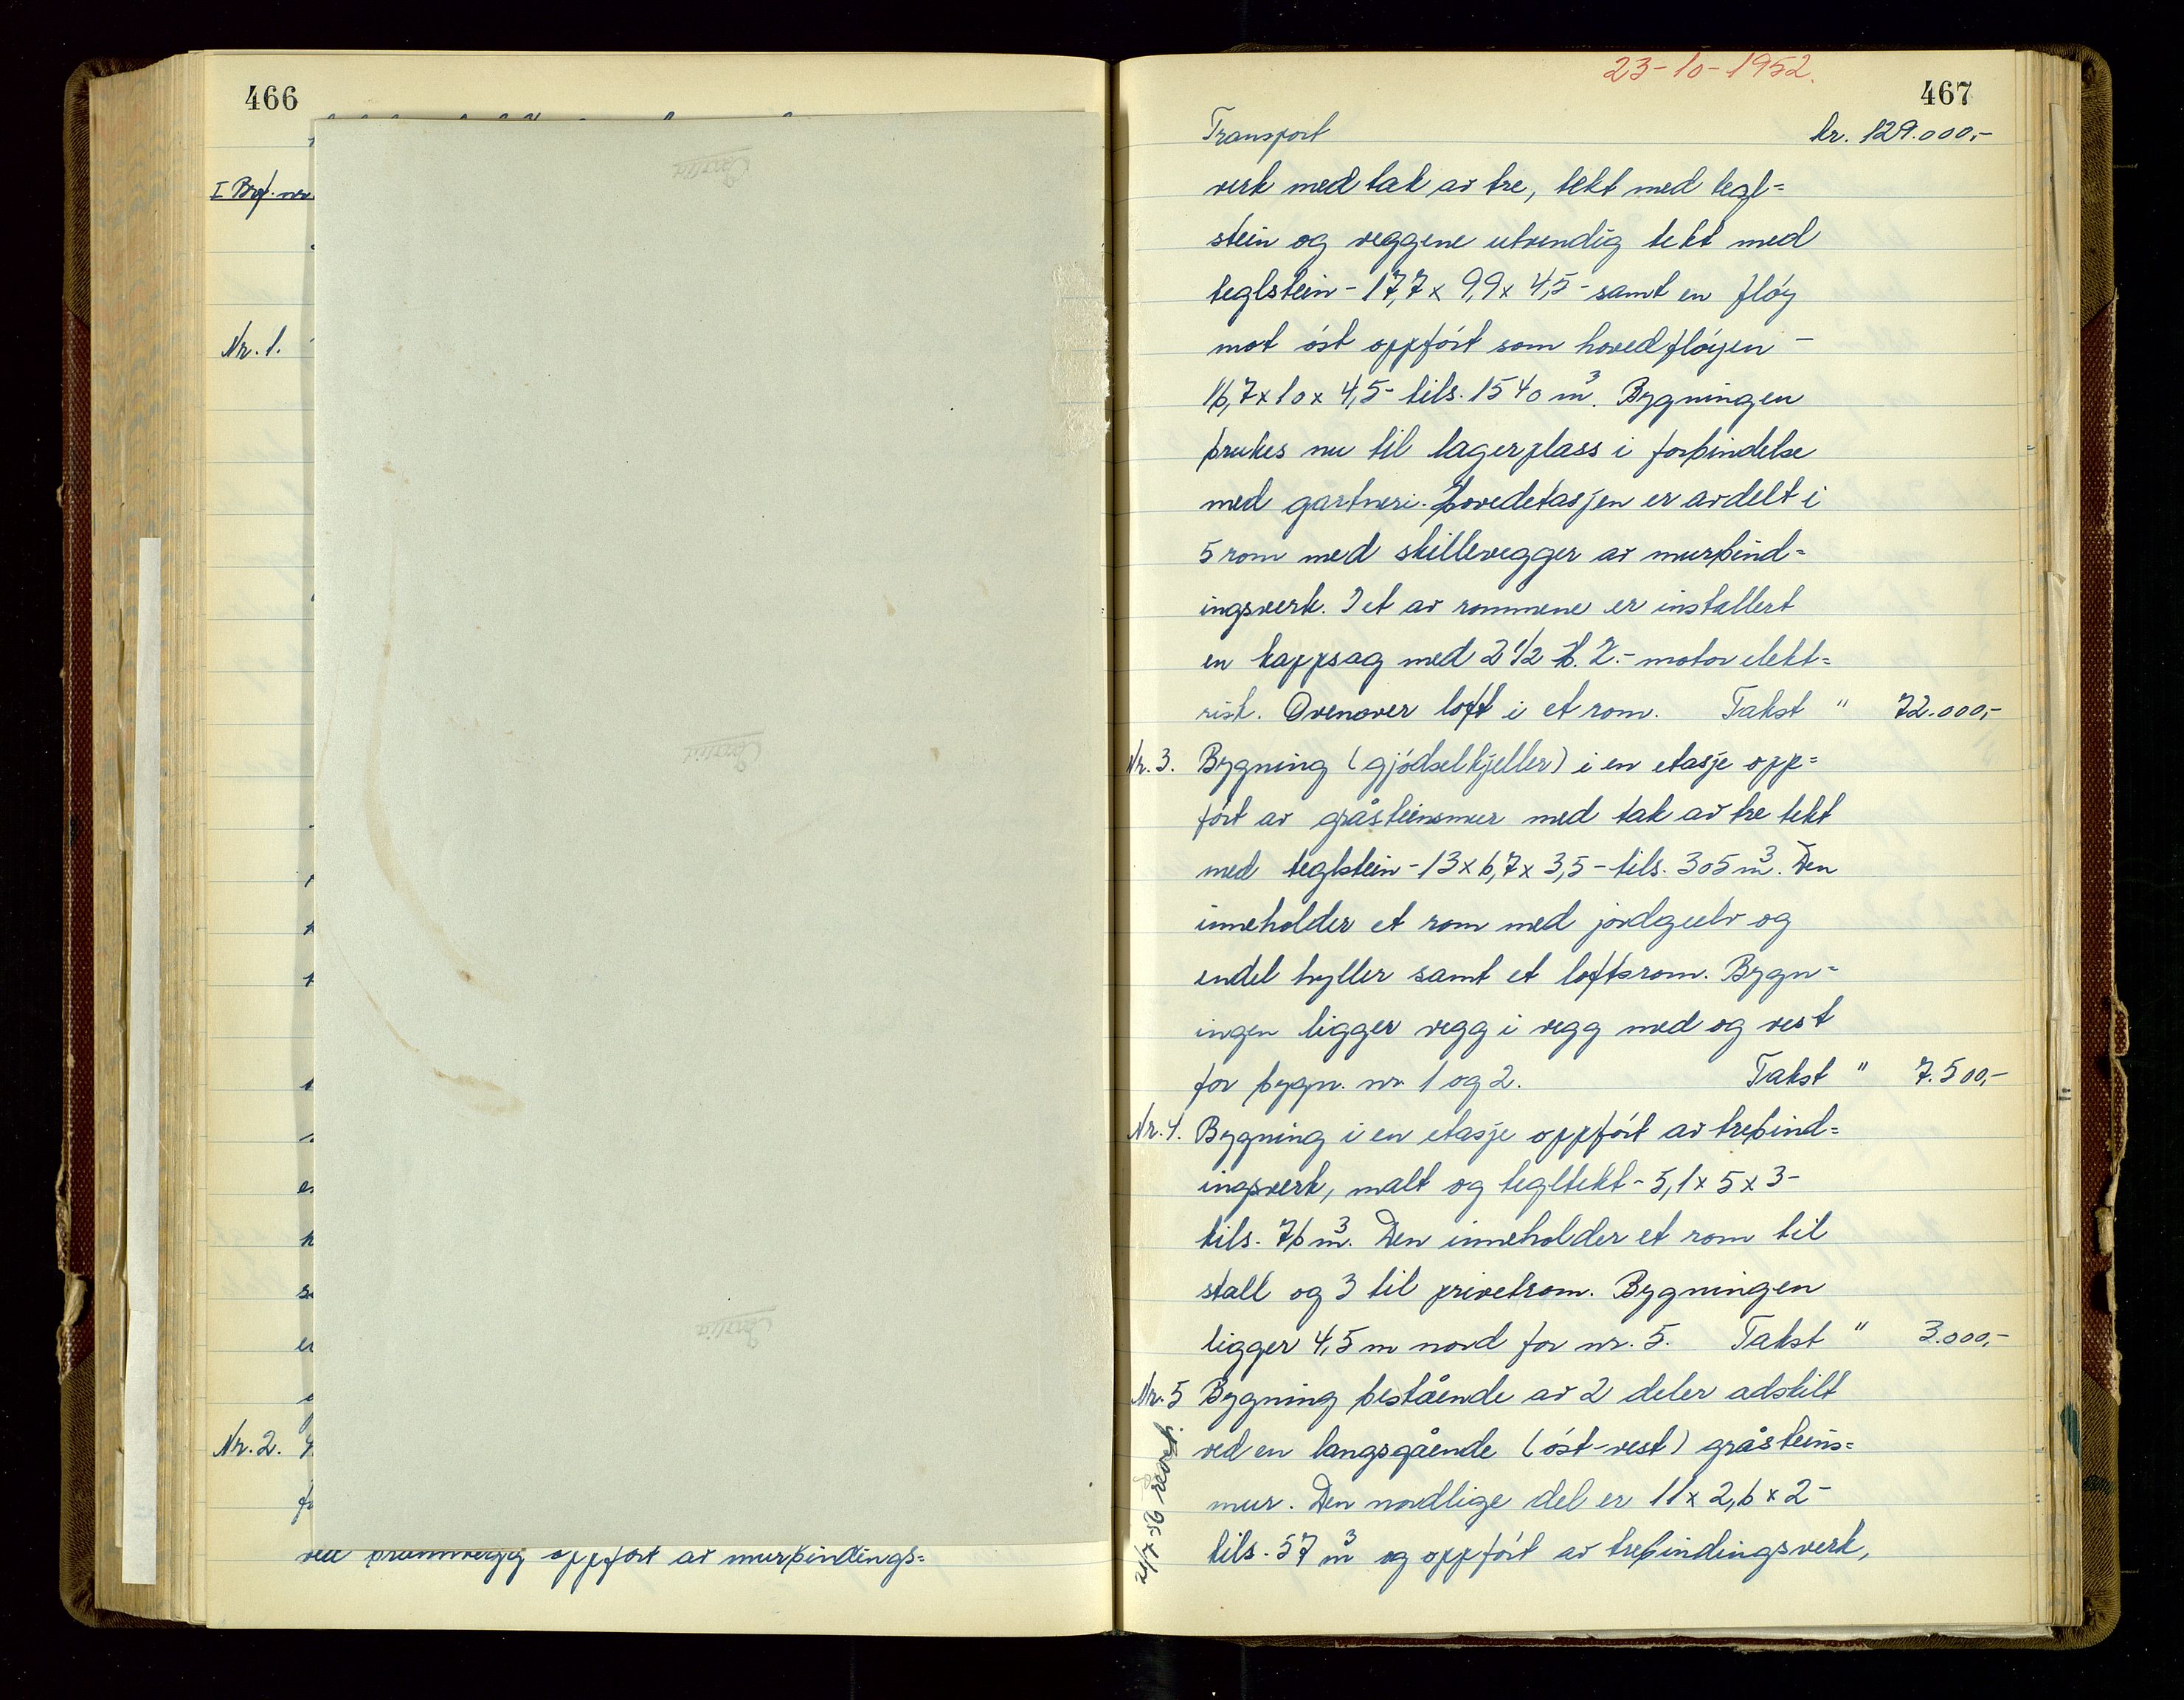 466
I Brf. nr.
Nr. 1.
Nr. 2.
ved brannvegg oppført av murbindings=
23-10-1952.
467
Transport kr. 129.000,-
verk med tak av tre, tekt med tegl=
stein og veggene utvendig tekt med
teglstein - 17,7 x 9,9 x 4,5 - samt en fløy
mot øst oppført som hovedfløyen -
16,7 x 10 x 4,5 - tils. 1540 m³. Bygningen
brukes nu til lagerplass i forbindelse
med gartneri. Hovedetasjen er avdelt i
5 rom med skillevegger av murbind=
ingsverk. I et av rommene er installert
en kappsag med 2 1/2 H.K.- motor elekt=
risk. Ovenover loft i et rom. Takst " 72.000,-
Nr. 3. Bygning (gjødselkjeller) i en etasje opp=
ført av gråsteinsmur med tak av tre tekt
med teglstein - 13 x 6,7 x 3,5 - tils. 305 m³. Den
inneholder et rom med jordgulv og
endel hyller samt et loftsrom. Bygn=
ingen ligger vegg i vegg med og vest
for bygn. nr. 1 og 2. Takst " 7.500,-
Nr. 4. Bygning i en etasje oppført av trebind=
ingsverk, malt og tegltekt - 5,1 x 5 x 3 -
tils. 76 m³. Den inneholder et rom til
stall og 3 til privetrom. Bygningen
ligger 4,5 m nord for nr. 5. Takst " 3.000,-
Nr. 5 Bygning bestående av 2 deler adskilt
ved en langsgående (øst-vest) gråsteins=
mur. Den nordlige del er 11 x 2,6 x 2 -
tils. 57 m³ og oppført av trebindingsverk,